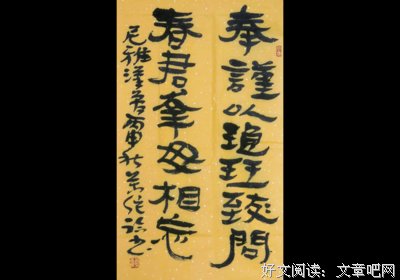 奉謹以琅玕致問
春君幸毋相忘
尼雅漢簡丙申秋
好文阅读：文章吧网